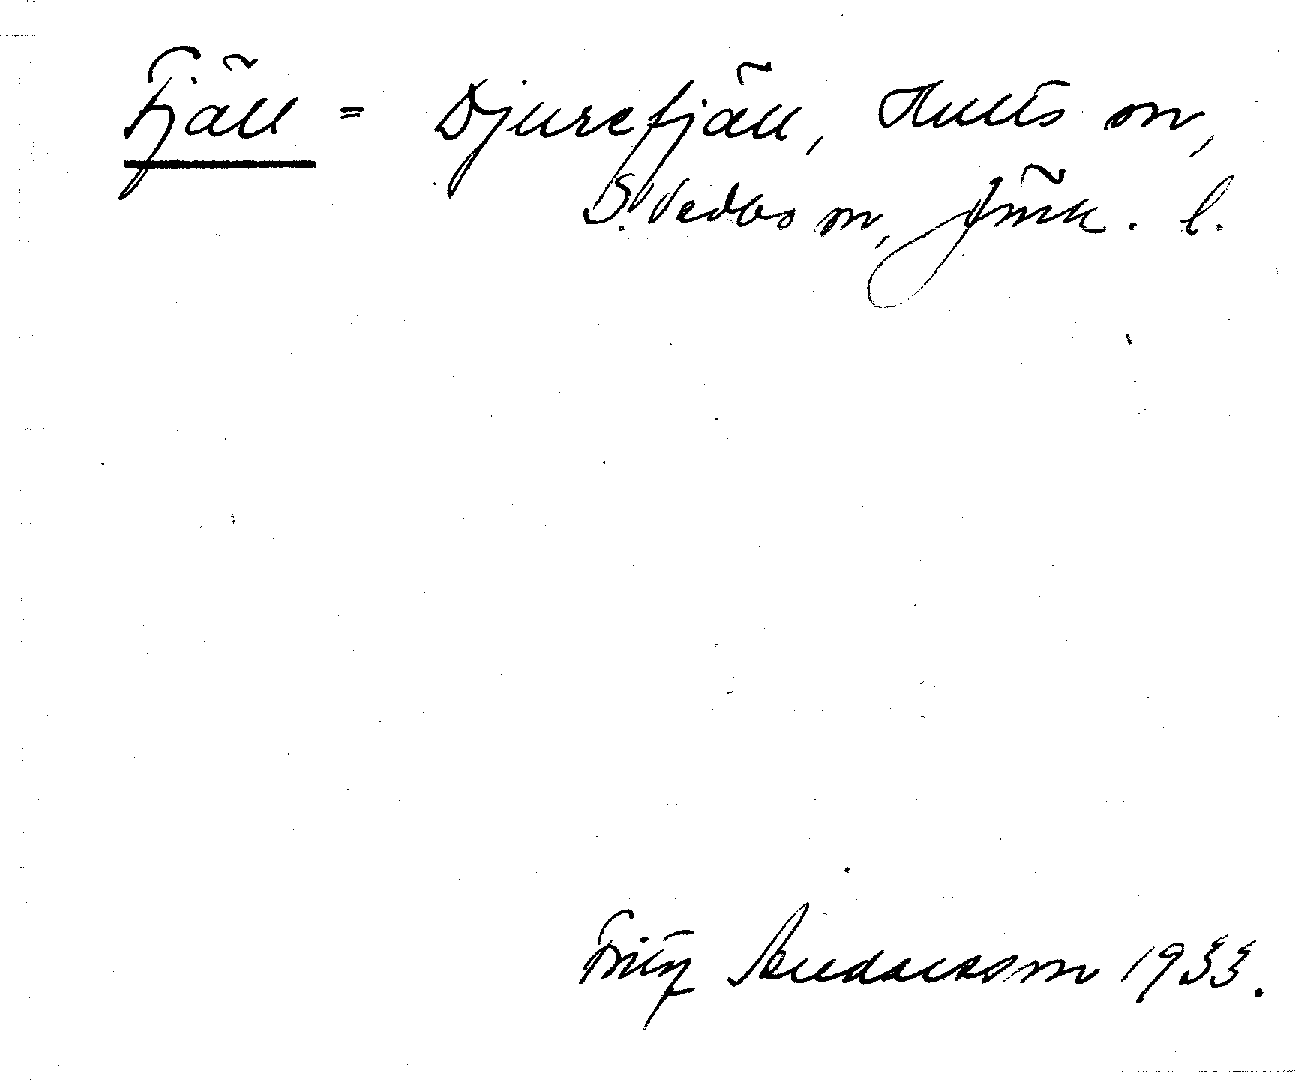 Fjäll = Djurefjäll, Hults sn,
S. Vedbo sn, Jönk. l.
Fritz Andersson 1933.